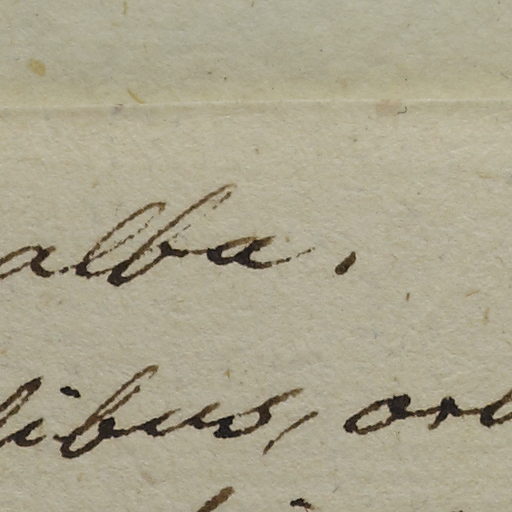 alba.
libus, orb